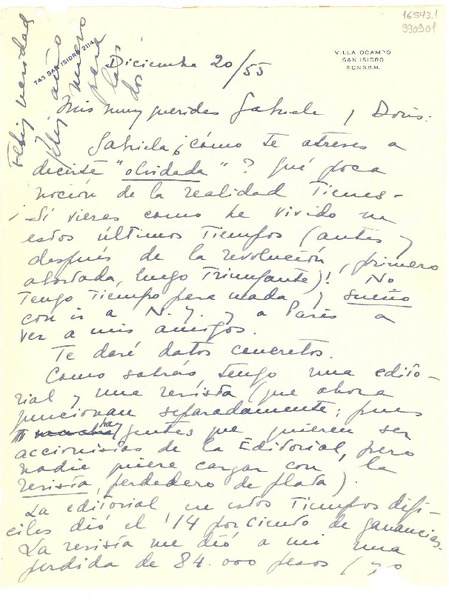 16543.1
990901
VILLA OCAMPO
SAN ISIDRO
F.C.N.G.B.M.
743 SAN ISIDRO 2114
Feliz navidad
feliz año
nuevo
para
las
dos
Diciembre 20/55
Mis muy queridas Gabriela y Doris:
Gabriela ¿cómo te atreves a
decirte "olvidada"? Qué poca
noción de la realidad tienes.
¡Si vieras como he vivido en
estos últimos tiempos (antes y
después de la revolución, primero
abortada, luego triunfante)! No
tengo tiempo para nada y sueño
con ir a N.Y. y a París a
ver a mis amigos.
Te daré datos concretos.
Como sabrás tengo una edito-
rial y una revista (que ahora
funcionan separadamente; pues
hay gentes que quieren ser
accionistas de la Editorial, pero
nadie quiere cargar con la
revista, perdedero de plata).
La editorial en estos tiempos difí-
ciles dió el 14 por ciento de ganancias.
La revista me dió a mí una
perdida de 84.000 pesos (yo